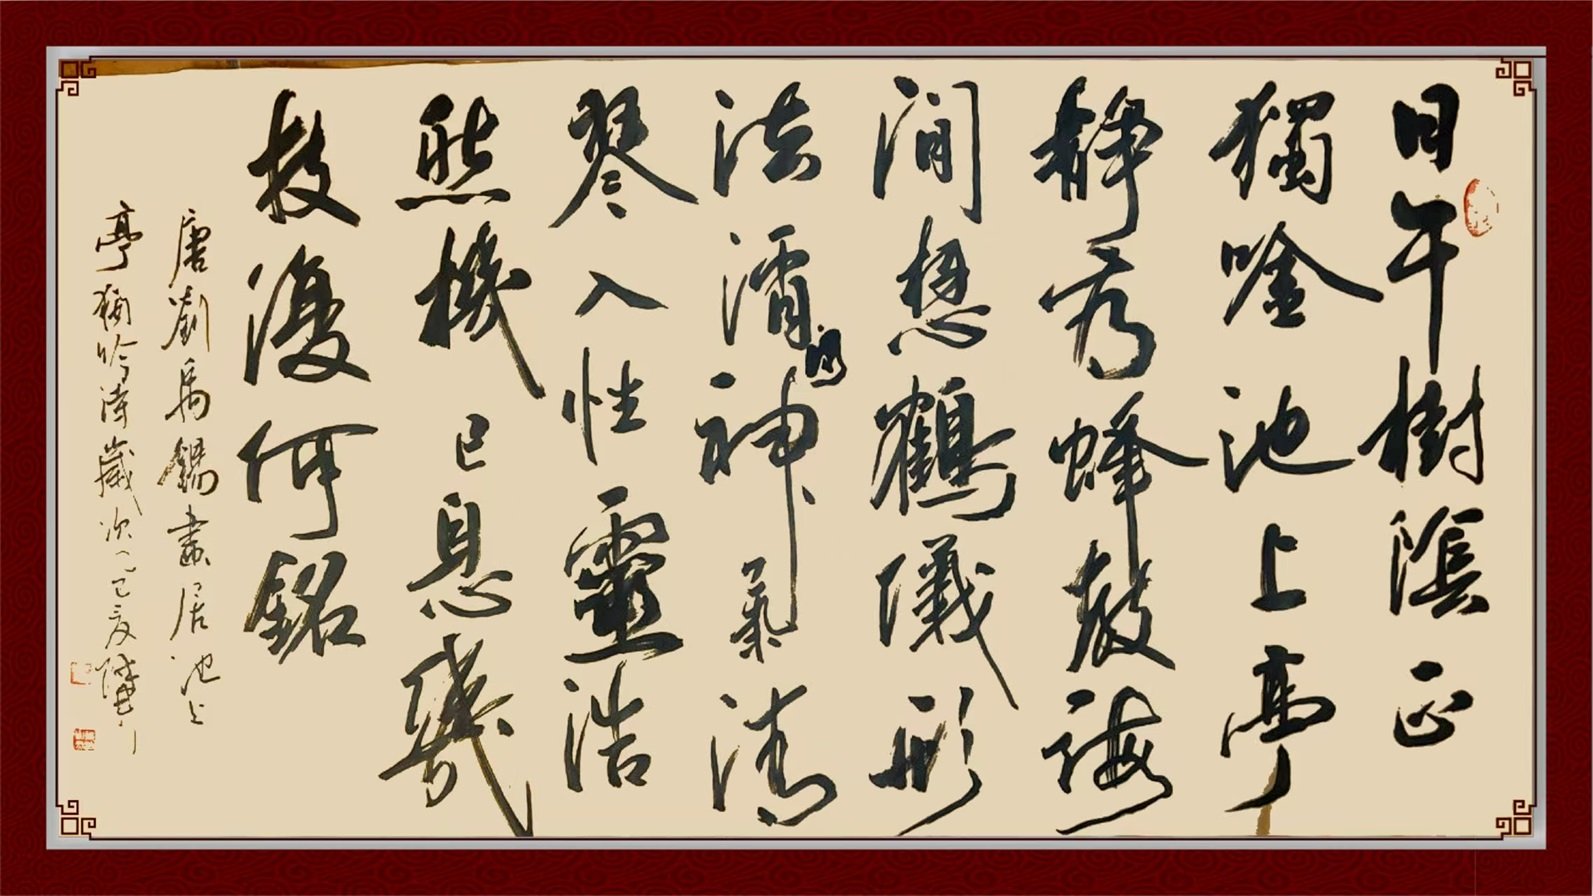 日午樹陰正
獨唫池上亭
靜看蜂教誨
閒想鶴儀形
法酒調神氣清
琴入性靈浩
然機已息幾
杖復何銘
唐劉禹錫晝居池上
亭獨吟詩歲次乙巳夏